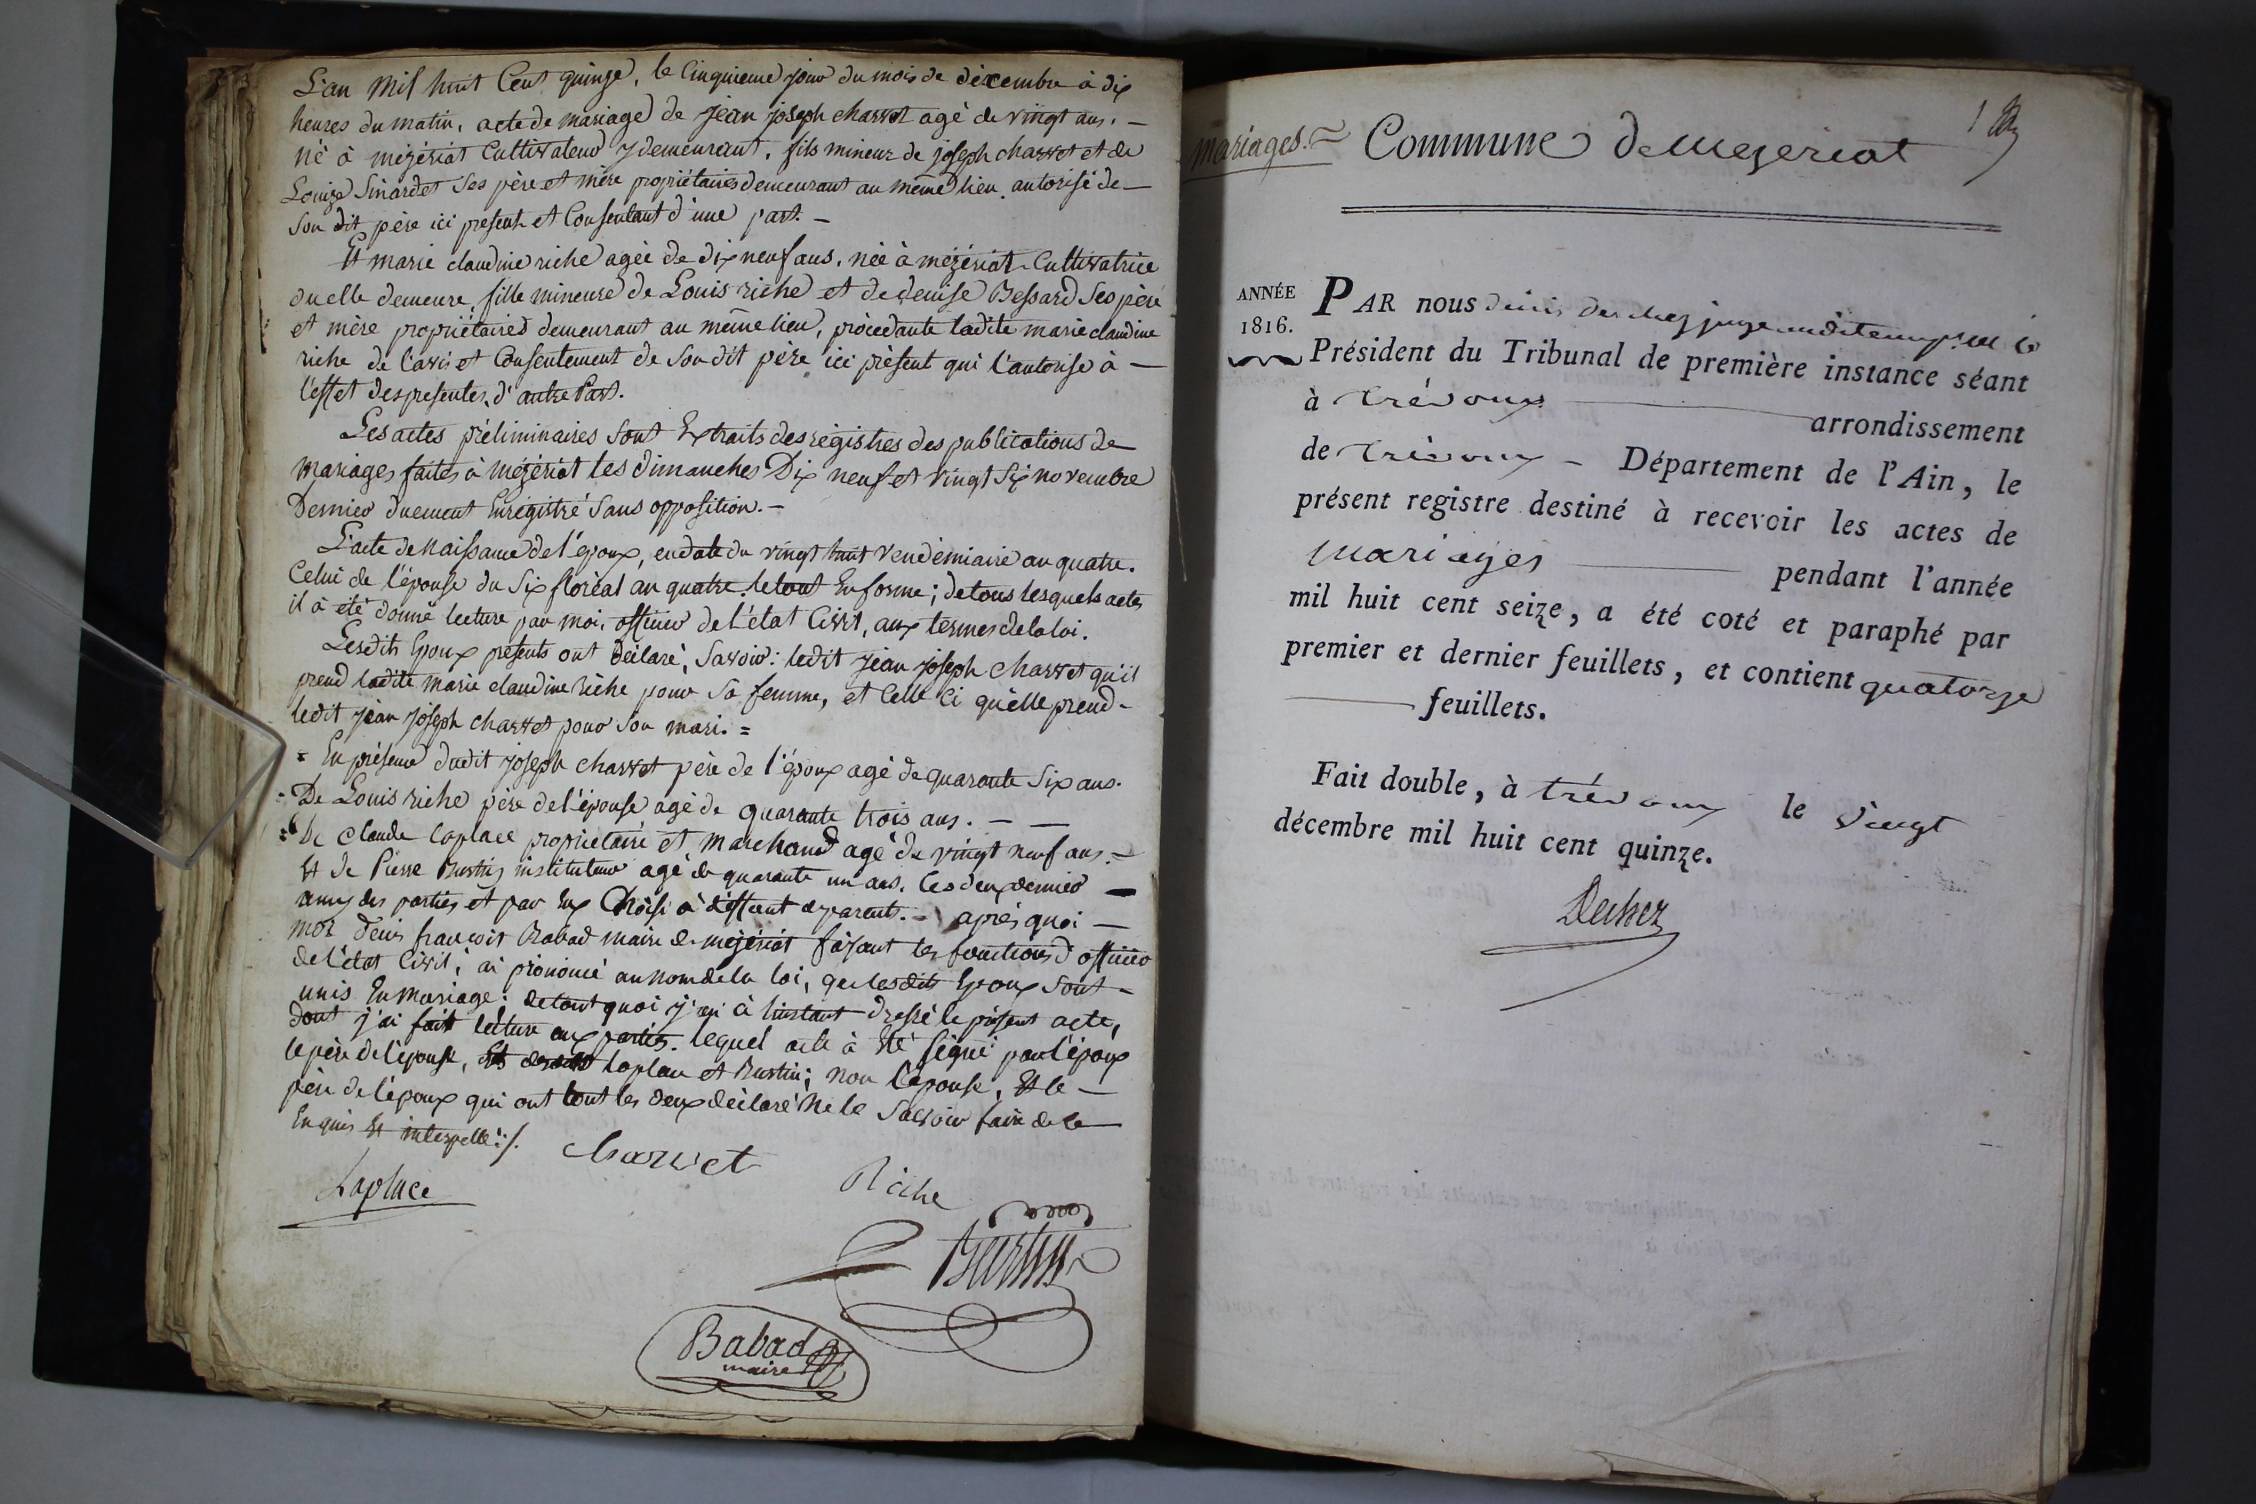 L'an mil huit Cent quinze, le Cinquieme jour du mois de décembre à dix
heures du matin, acte de mariage de jean joseph charvet agé de vingt ans. —
né à mézériat Cultivateur y demeurant, fils mineur de joseph charvet et de
Louize Sinardet Ses père et mère propriétaires demeurant au même lieu, autorisé de —
Son dit père ici present et Consentant d'une part. —
Et marie claudine riche agée de dix neuf ans, née à mézériat Cultivatrice
ou elle demeure, fille mineure de Louis riche et de denise Bessard Ses père
et mère propriétaires demeurant au même lieu, procedante ladite marie claudine
riche de l'avis et Consentement de Son dit père ici présent qui l'autorise à —
l'effet des presentes, d'autre Part.
Les actes préliminaires Sont Extraits des régistres des publications de
mariages faites à mézériat les dimanches Dix neuf et vingt Six novembre
Dernier duement Enrégistré Sans opposition. —
L'acte de Naissance de l'époux, en date du vingt huit vendémiaire an quatre.
Celui de l'épouse du Six floréal an quatre. le tout En forme; de tous lesquels actes
il à été donné lecture par moi, officier de L'état Civil, aux termes de la loi.
Lesdits Epoux présents ont Déclaré, Savoir: ledit jean joseph charvet qu'il
prend ladite marie claudine riche pour Sa femme, et Celle Ci qu'elle prend -
ledit jean joseph charvet pour Son mari. =
= En présence dudit joseph charvet père de l'époux agé de quarante Six ans.
= De Louis riche père de l'épouse agé de quarante trois ans. — —
= De claude laplace propriétaire et marchand agé de vingt neuf ans. —
Et de Pierre Burtin instituteur agé de quarante un ans, les deux dernier —
amys des parties et par Eux Choisi à déffaut de parents. — après quoi —
moi denis françois Babad maire de mézériat faisant les fonctions d'officier
de l'état Civil, ai prononcé au nom de la loi, que lesdits Epoux Sont —
unis En mariage: de tout quoi j'ai à linstant dressé le présent acte,
dont j'ai fait lecture aux parties. lequel acte à été Signé par l'époux
le père de l'épouse, laplace et Burtin; non l'épouse, Et le —
père de l'époux qui ont tout les deux déclaré ne le Savoir faire de ce
Enquis Et interpellé ./.
Charvet
Riche
Laplace
Burtin
Babad
maire
1
mariages. Commune de Mezeriat
ANNÉE
1816.
PAR nous denis dechez juge
Président du Tribunal de première instance séant
à trévoux arrondissement
de trévoux — Département de l'Ain, le
présent registre destiné à recevoir les actes de
mariages pendant l'année
mil huit cent seize, a été coté et paraphé par
premier et dernier feuillets, et contient quatorze
feuillets.
Fait double, à trévoux le vingt
décembre mil huit cent quinze.
Dechez